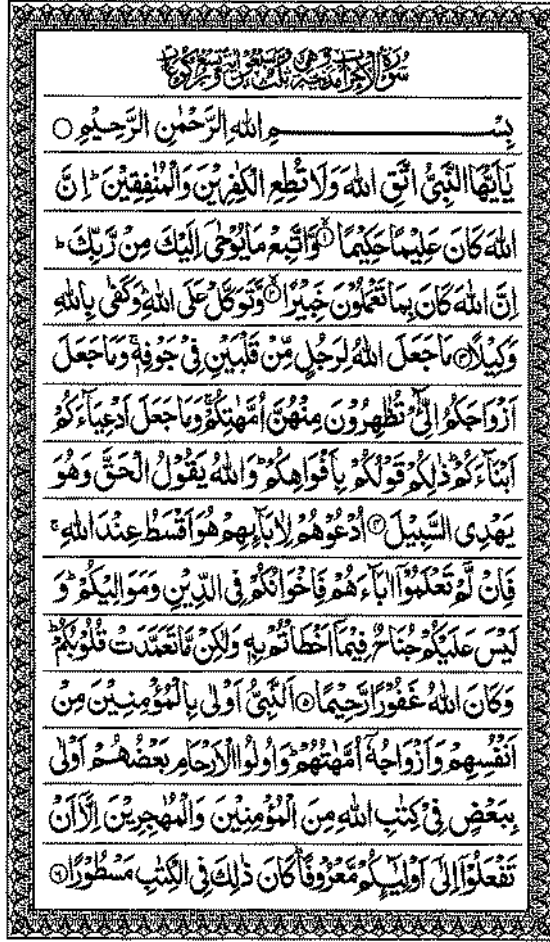 سُوْرَةُ الْاَحْزَابِ مَدَنِيَّةٌ وَّهِىَ ثَلٰثٌ وَّسَبْعُوْنَ اٰيَةً وَّتِسْعُ رُكُوْعَاتٍ
بِسْمِ اللهِ الرَّحْمٰنِ الرَّحِيْمِ ○
يٰۤاَيُّهَا النَّبِىُّ اتَّقِ اللهَ وَلَا تُطِعِ الْكٰفِرِيْنَ وَالْمُنٰفِقِيْنَ ؕ اِنَّ
اللهَ كَانَ عَلِيْمًا حَكِيْمًا ۙ﴿۱﴾ وَّاتَّبِعْ مَا يُوْحٰۤى اِلَيْكَ مِنْ رَّبِّكَ ؕ
اِنَّ اللهَ كَانَ بِمَا تَعْمَلُوْنَ خَبِيْرًا ۙ﴿۲﴾ وَّتَوَكَّلْ عَلَى اللهِ ؕ وَكَفٰى بِاللهِ
وَكِيْلًا ﴿۳﴾ مَا جَعَلَ اللهُ لِرَجُلٍ مِّنْ قَلْبَيْنِ فِىْ جَوْفِهٖ ۚ وَمَا جَعَلَ
اَزْوَاجَكُمُ الّٰٓـئِْ تُظٰهِرُوْنَ مِنْهُنَّ اُمَّهٰتِكُمْ ۚ وَمَا جَعَلَ اَدْعِيَآءَكُمْ
اَبْنَآءَكُمْ ؕ ذٰلِكُمْ قَوْلُكُمْ بِاَفْوَاهِكُمْ ؕ وَاللهُ يَقُوْلُ الْحَقَّ وَهُوَ
يَهْدِى السَّبِيْلَ ﴿۴﴾ اُدْعُوْهُمْ لِاٰبَآئِهِمْ هُوَ اَقْسَطُ عِنْدَ اللهِ ۚ
فَاِنْ لَّمْ تَعْلَمُوْۤا اٰبَآءَهُمْ فَاِخْوَانُكُمْ فِى الدِّيْنِ وَمَوَالِيْكُمْ ؕ وَ
لَيْسَ عَلَيْكُمْ جُنَاحٌ فِيْمَاۤ اَخْطَاْتُمْ بِهٖ وَلٰكِنْ مَّا تَعَمَّدَتْ قُلُوْبُكُمْ ؕ
وَكَانَ اللهُ غَفُوْرًا رَّحِيْمًا ﴿۵﴾ اَلنَّبِىُّ اَوْلٰى بِالْمُؤْمِنِيْنَ مِنْ
اَنْفُسِهِمْ وَاَزْوَاجُهٗۤ اُمَّهٰتُهُمْ ؕ وَاُولُوا الْاَرْحَامِ بَعْضُهُمْ اَوْلٰى
بِبَعْضٍ فِىْ كِتٰبِ اللهِ مِنَ الْمُؤْمِنِيْنَ وَالْمُهٰجِرِيْنَ اِلَّاۤ اَنْ
تَفْعَلُوْۤا اِلٰٓى اَوْلِيٰٓـئِكُمْ مَّعْرُوْفًا ؕ كَانَ ذٰلِكَ فِى الْكِتٰبِ مَسْطُوْرًا ﴿۶﴾